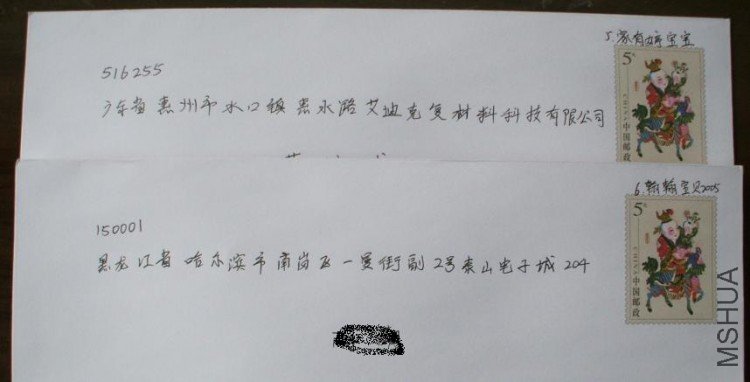 5.家有妤宝宝
5元
中国邮政
CHINA
516255
广东省惠州市水口镇惠水路艾迪克复材料科技有限公司
6.翰翰宝贝2005
5元
中国邮政
CHINA
150001
黑龙江省哈尔滨市南岗区一曼街副2号泰山电子城204
MSHUA